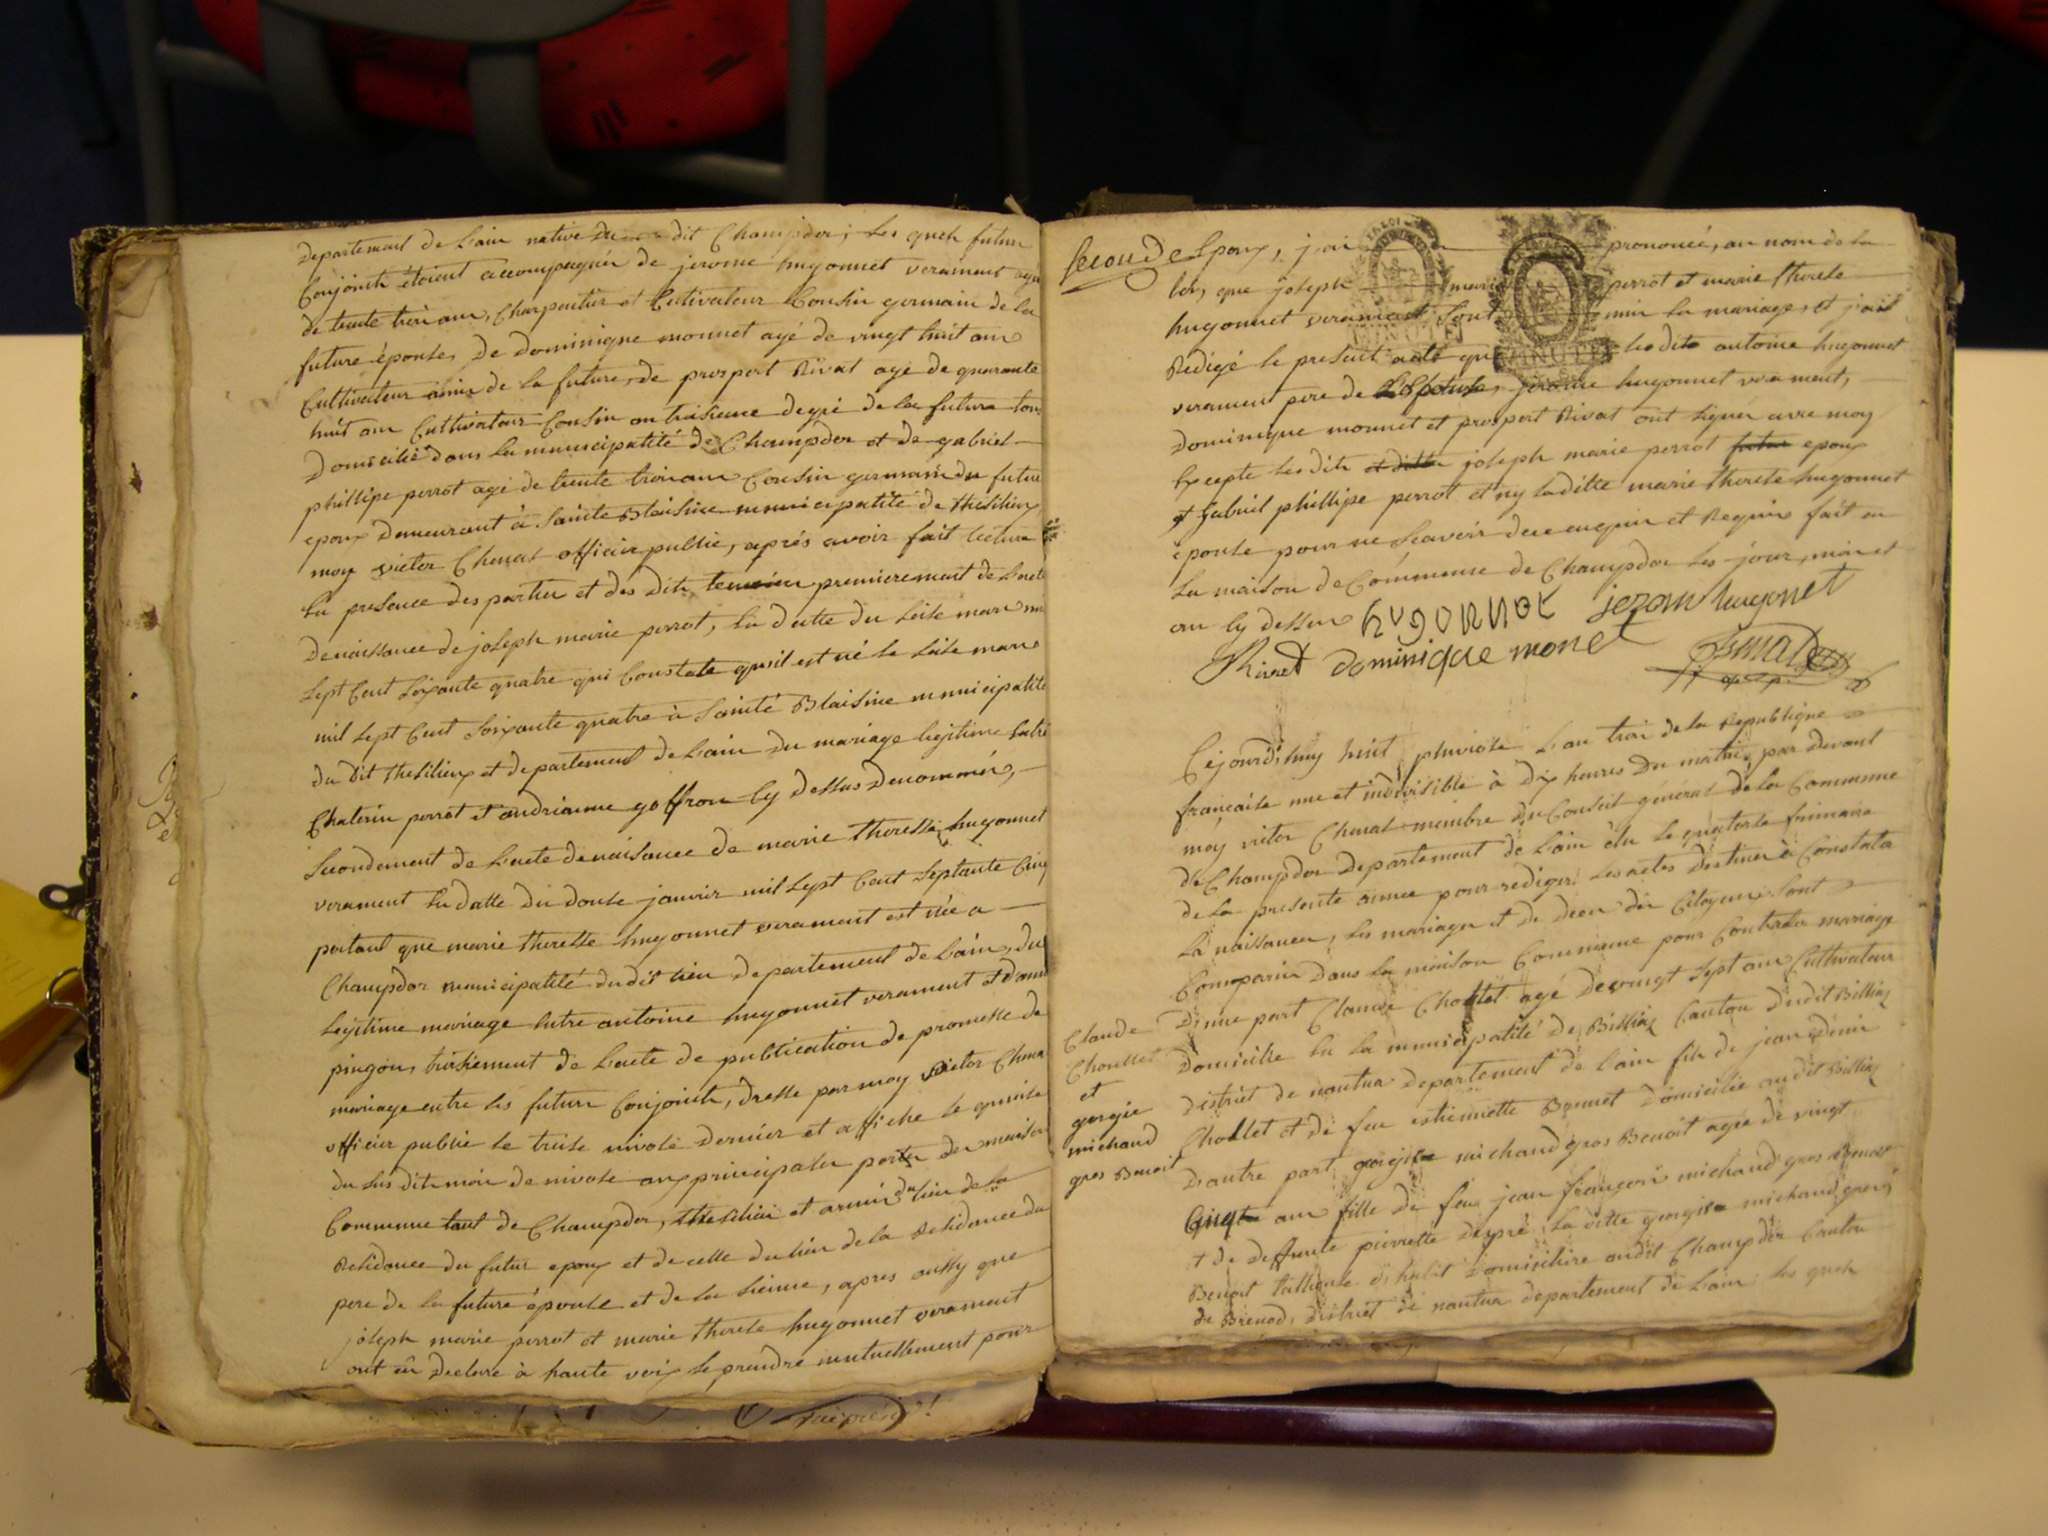 departement de Lain native du dit Champdor; Les quels futurs
Conjoints étoient accompagnés de jerome hugonnet verament agé
de trente trois ans, Charpentier et Cultivateur Cousin germain de la
future épouse, De dominique monnet agé de vingt huit ans
Cultivateur amis de la future, de prospert Rivat agé de quarante
huit ans Cultivateur Cousin au troisieme degré de la future tous
Domicilié dans la municipatité de Champdor et de gabriel
phillipe perrot agé de trente trois ans Cousin germain du futur
epoux Demeurant à Sainte Blaisine municipatité de thesilieux
moy victor Chenat officier public, aprés avoir fait lecture
En presence des parties et des dits temoins premierement de Lacte
De naissance de joseph marie perrot, En datte du seise mars mil
sept Cent soixante quatre qui Constate quil est né le seise mars
mil sept Cent soixante quatre à Sainte Blaisine municipatité
du dit thesilieux et departement de Lain du mariage legitime Entre
Chaterin perrot et andrianne goffron Cy dessus denommés,
Secondement de Lacte de naissance de marie theresse hugonnet
verament En datte du douse janvier mil sept Cent septante Cinq
portant que marie theresse hugonnet verament est née a
Champdor municipatité du dit lieu departement de Lain, du
legitime mariage Entre antoine hugonnet verament et danne
pingon, troisiement de Lacte de publication de promesse de
mariage entre les futurs Conjoints, dressé par moy victor Chenat
officier public le treise nivose dernier et affiché le quinse
du sus dit mois de nivose aux principales portes des maisons
Commune tant de Champdor, thesilieu et du lieu de la
Residence du futur epoux et de celle du lieu de la Residence du
pere de la future épouse et de la sienne, apres aussy que
joseph marie perrot et marie therese hugonnet verament
ont eu declaré à haute voix se prendre mutuellement pour
seconde Epoux, j'ai prononcé, au nom de la
loy, que joseph marie perrot et marie therese
hugonnet verament sont unis En mariage, et j'ait
Rédigé le present acte que lesdits antoine hugonnet
verament pere de Lepouse, jerome hugonnet verament,
Dominique monnet et prospert Rivat ont signés avec moy
Excepte lesdits joseph marie perrot futur epoux
et gabriel phillipe perrot et ny ladite marie therese hugonnet
épouse pour ne sçavoir de ce enquis et Requis fait en
La maison de Commune de Champdor les jour, mois et
an Cy dessus hugonnet jerom hugonet
Rivat dominique monet
Cejourd'huy huit pluviose L'an trois de la Republique
française une et indivisible à dix heures du matin, par devant
moy victor Chenat membre du Conseil général de la Commune
de Champdor departement de Lain élu le quatorse frimaire
de la presente année pour rediger les actes destinés à Constater
La naissances, les mariages et de deces des Citoyens Sont
Comparus dans la maison Commune pour Contracter mariage
D'une part Claude Chollet agé de vingt sept ans Cultivateur
Domicilie En la municipatité de Billiaz Canton dudit Billiaz
District de nantua departement de lain fils de jean denis
Chollet et de feu estiennette Bonnet domicilié audit Billiaz
D'autre part georgine michaud gros Benoit agée de vingt
Cinq ans fille de feu jean françois michaud gros Benoit
et de deffunte pierrette despré, la ditte georgine michaud gros
Benoit domicilire audit Champdor Canton
de Brenod, District de nantua departement de Lain les quels
Claude
Choullet
et
gorgie
michaud
gros Benoit